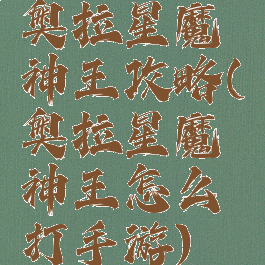 奥拉星魔
神王攻略(
奥拉星魔
神王怎么
打手游)